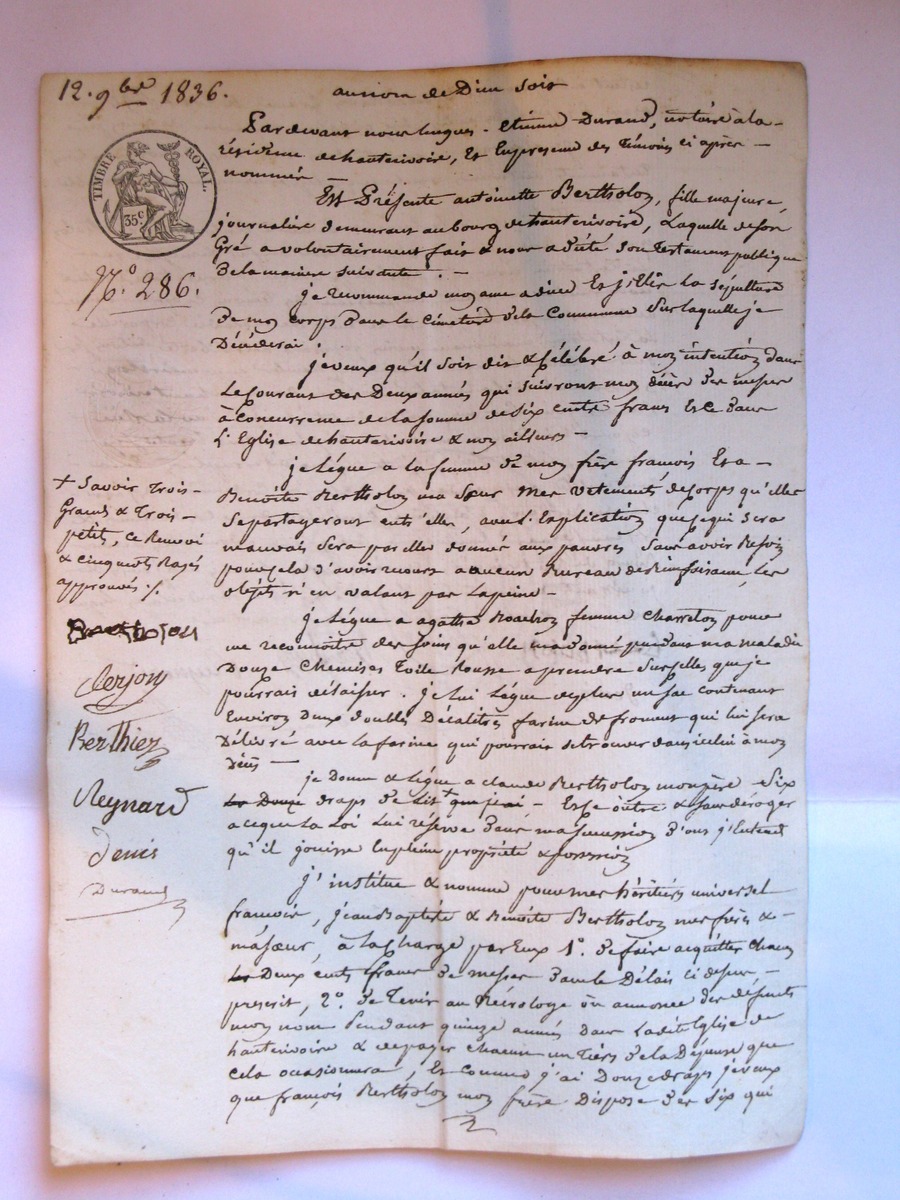 12. 9bre 1836.
au nom de Dieu soit
TIMBRE ROYAL.
35c
N.o 286.
Pardevant nous Etienne Durand, notaire à la
résidence de hauterivoire, Et En presence des Témoins ci après
nommés
Est Présente antoinette Bertholon, fille majeure,
journalière demeurant au bourg de hauterivoire, Laquelle de son
Gré a volontairement fait & nous a dicté son Testament publique
De la manière suivante. —
je recommande mon ame a dieu Et j'Elis La sépulture
De mon corps dans le cimetière de la Commune sur laquelle je
Décèderai.
je veux qu'il soit dit & Célébré à mon intention dans
Le Courant des Deux années qui suivront mon décès des messes
à Concurrence de la somme de six cents francs Et ce dans
L'Eglise de hauterivoire & non ailleurs —
je Lègue a la femme de mon frère françois Et a —
Benoite Bertholon ma sœur mes vetements de corps qu'elles
se partageront entr'elles, avec l'Explication que ce qui sera
mauvais sera par elles donné aux pauvres sans avoir Besoin
pour cela d'avoir recours a aucun Bureau de Bienfaisance, Les
objets n'en valant pas la peine —
je Lègue a agathe femme Charreton pour
me reconnoitre des soins qu'elle m'a donné pendant ma maladie
Douze Chemises Toile Rousse a prendre sur celles que je
pourrais délaisser. je lui Lègue de plus un sac contenant
Environ deux doubles Décalitres farine de froment qui lui sera
Délivré avec la farine qui pourrait se trouver dans icelui à mon
décès —
je donne & Lègue a claude Bertholon mon père six
draps de Lit + — Et ce outre & sans déroger
a ce que La Loi Lui réserve dans ma succession d'ont j'Entend
qu'il jouisse En pleine propriété & possession
j'institue & nomme pour mes héritiers universel
françois, jean Baptiste & Benoite Bertholon mes frères & —
ma sœur, à la Charge par Eux 1o. de faire acquitter chacun
Deux cents francs de messes dans le Délais ci dessus, —
prescrit, 2o. de Tenir au Nécrologe ou annonce des défunts
mon nom Pendant quinze années dans La dite Eglise de
hauterivoire & de payer chacun un Tiers de la Dépense que
cela occasionnera, Et comme j'ai Douze draps je veux
que françois Bertholon mon frère Dispose des six qui
+ Savoir Trois —
Grands & Trois —
petits, ce Renvoi
& cinq mots Rayés
approuvés ./.
Clerjon
Berthier
Reynard
Denis
Durand